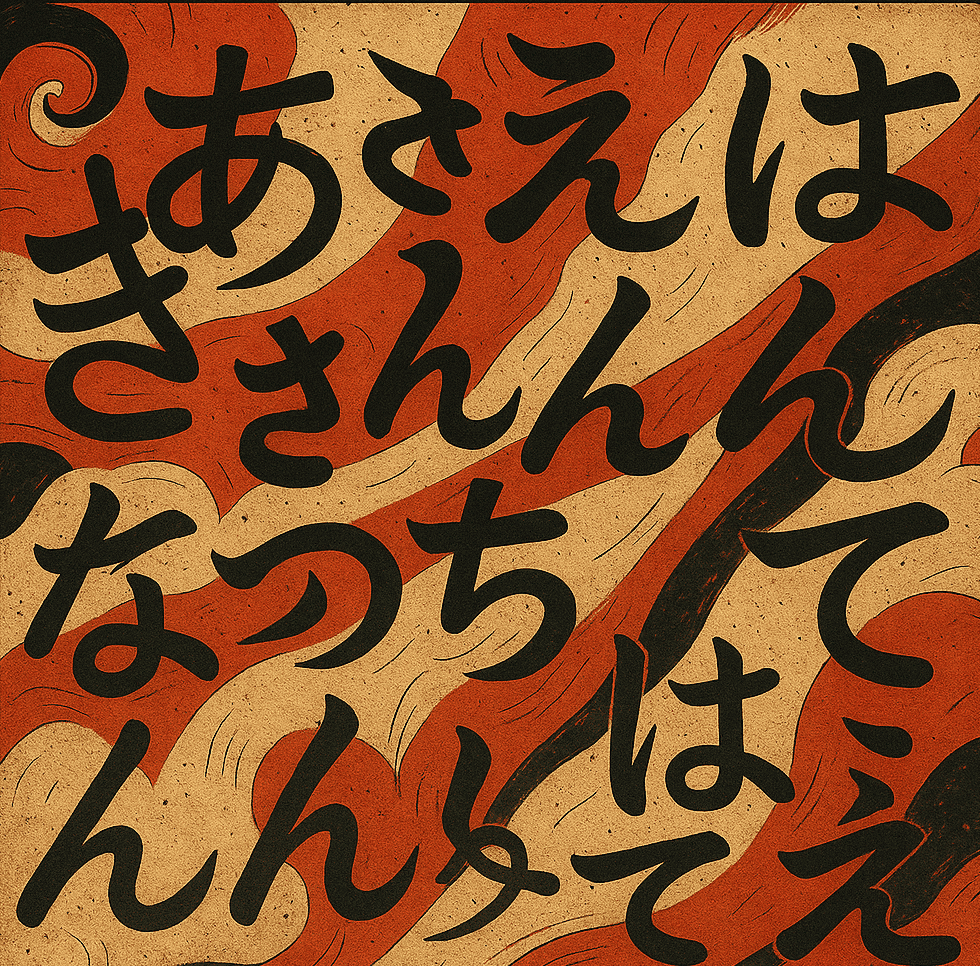 あえは
きさんんん
なつちて
は
んんてえ